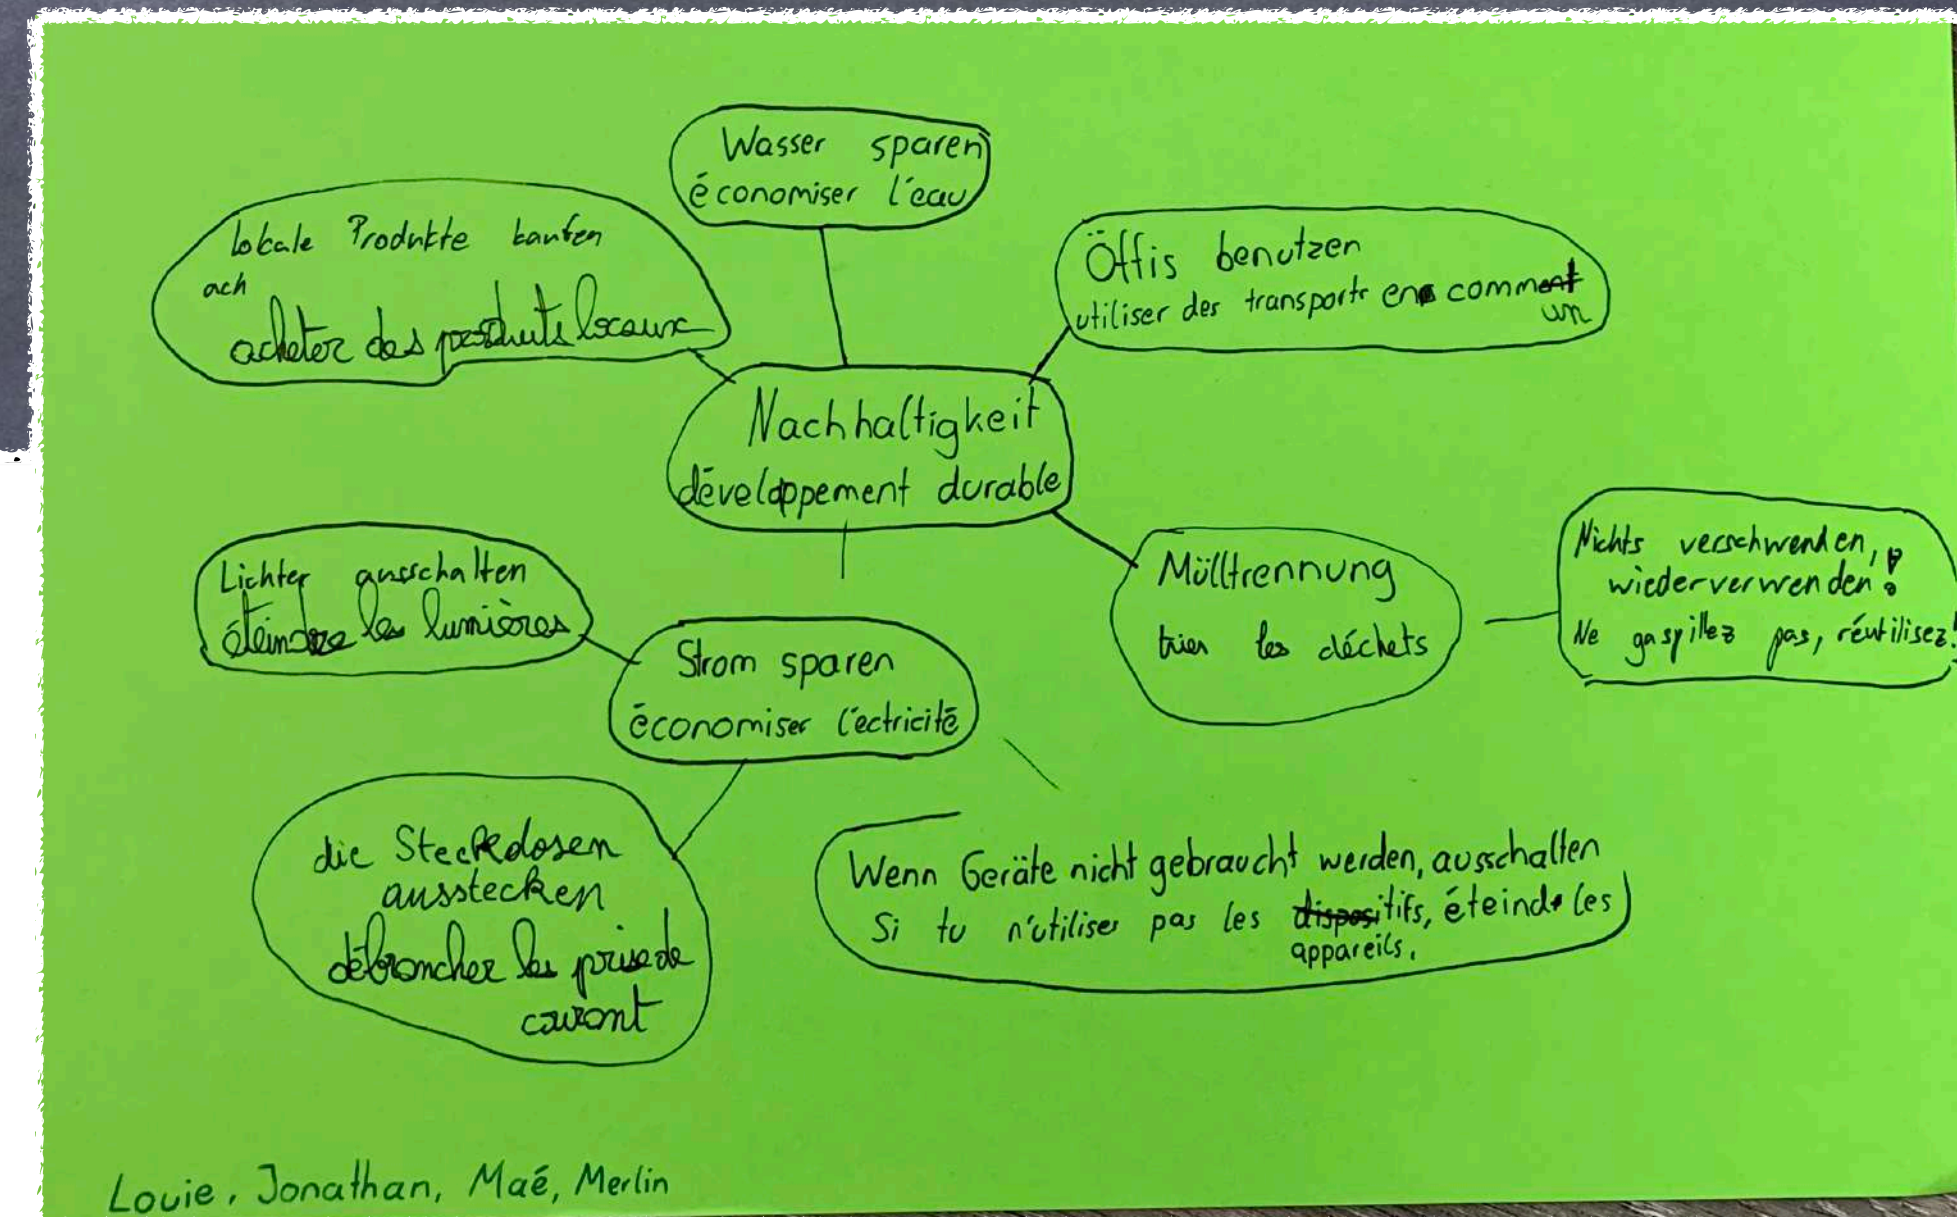 Wasser sparen
économiser l'eau
lokale Produkte kaufen
ach
acheter des produits locaux
Öffis benutzen
utiliser des transports en comment
un
Nachhaltigkeit
développement durable
Lichter ausschalten
éteindre les lumières
Mülltrennung
trier les déchets
Nichts verschwenden,
wiederverwenden!
Ne gaspillez pas, réutilisez!
Strom sparen
économiser l'ectricité
die Steckdosen
ausstecken
débrancher les prise de
courant
Wenn Geräte nicht gebraucht werden, ausschalten
Si tu n'utilises pas les dispositifs, éteind les
appareils.
Louie, Jonathan, Maé, Merlin